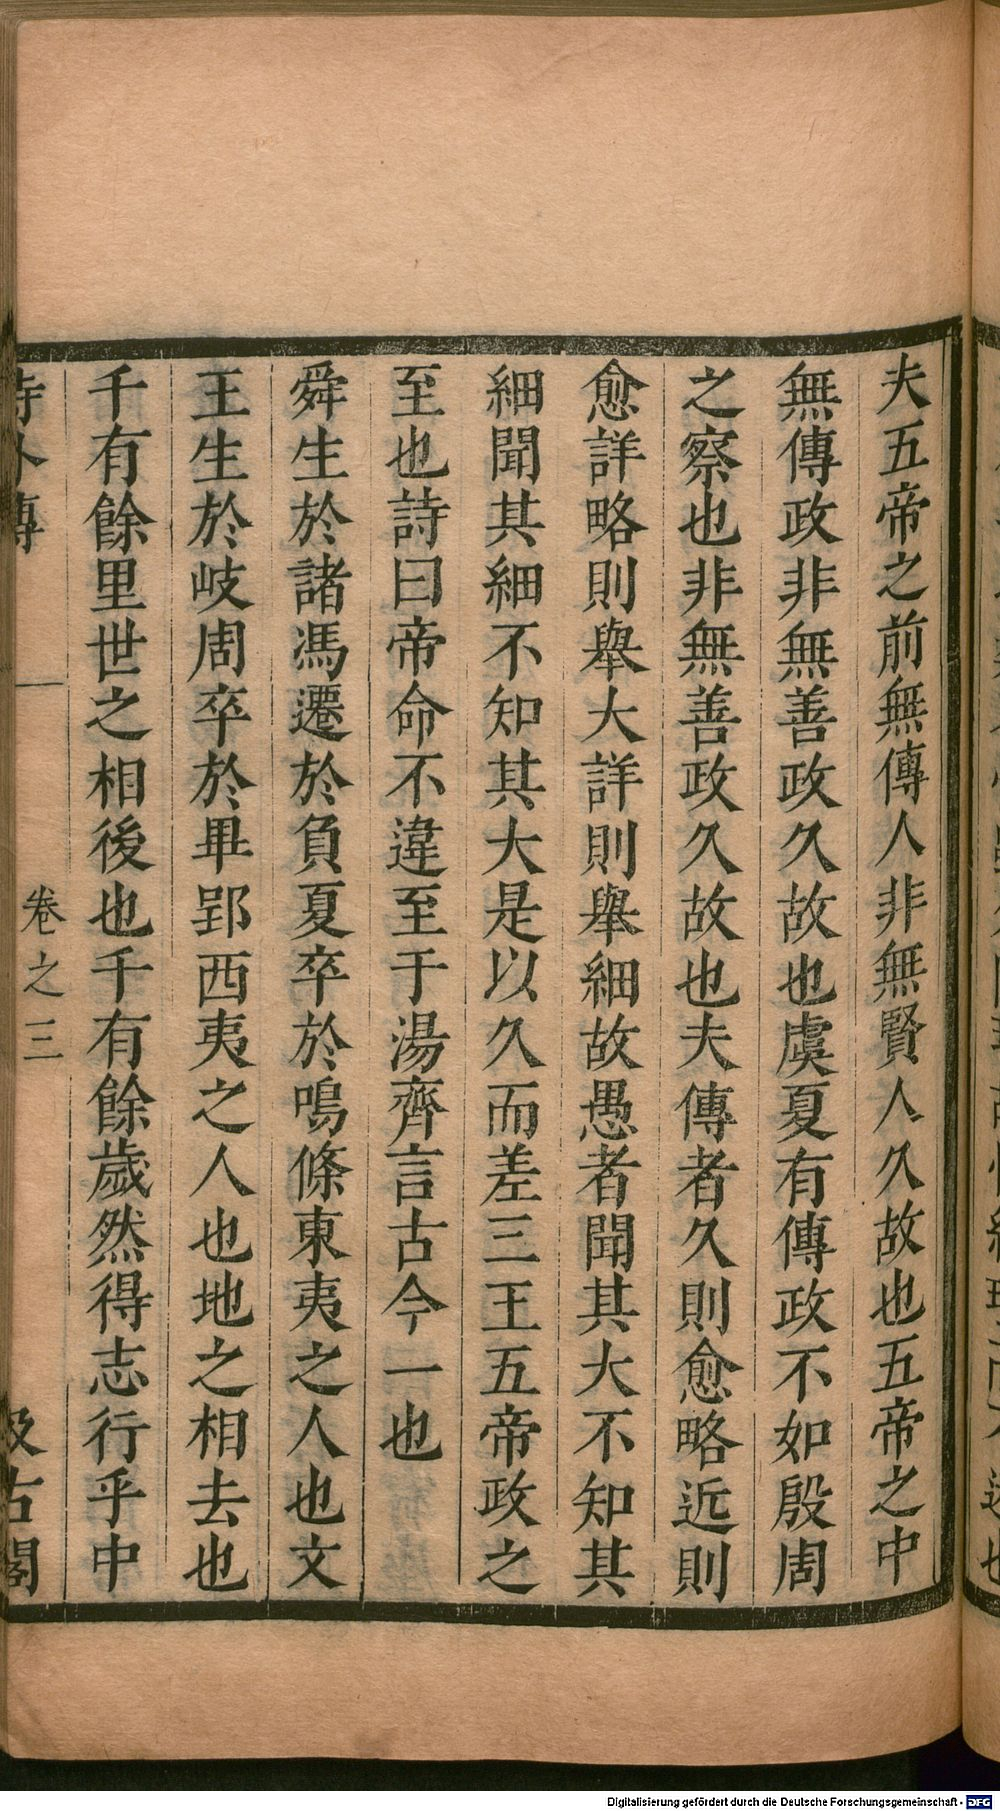 夫五帝之前無傳人非無賢人久故也五帝之中
無傳政非無善政久故也虞夏有傳政不如殷周
之察也非無善政久故也夫傳者久則愈略近則
愈詳略則舉大詳則舉細故愚者聞其大不知其
細聞其細不知其大是以久而差三王五帝政之
至也詩曰帝命不違至于湯齊言古今一也
舜生於諸馮遷於負夏卒於鳴條東夷之人也文
王生於岐周卒於畢郢西夷之人也地之相去也
千有餘里世之相後也千有餘歲然得志行乎中
詩外傳 卷之三 汲古閣
Digitalisierung gefördert durch die Deutsche Forschungsgemeinschaft - DFG